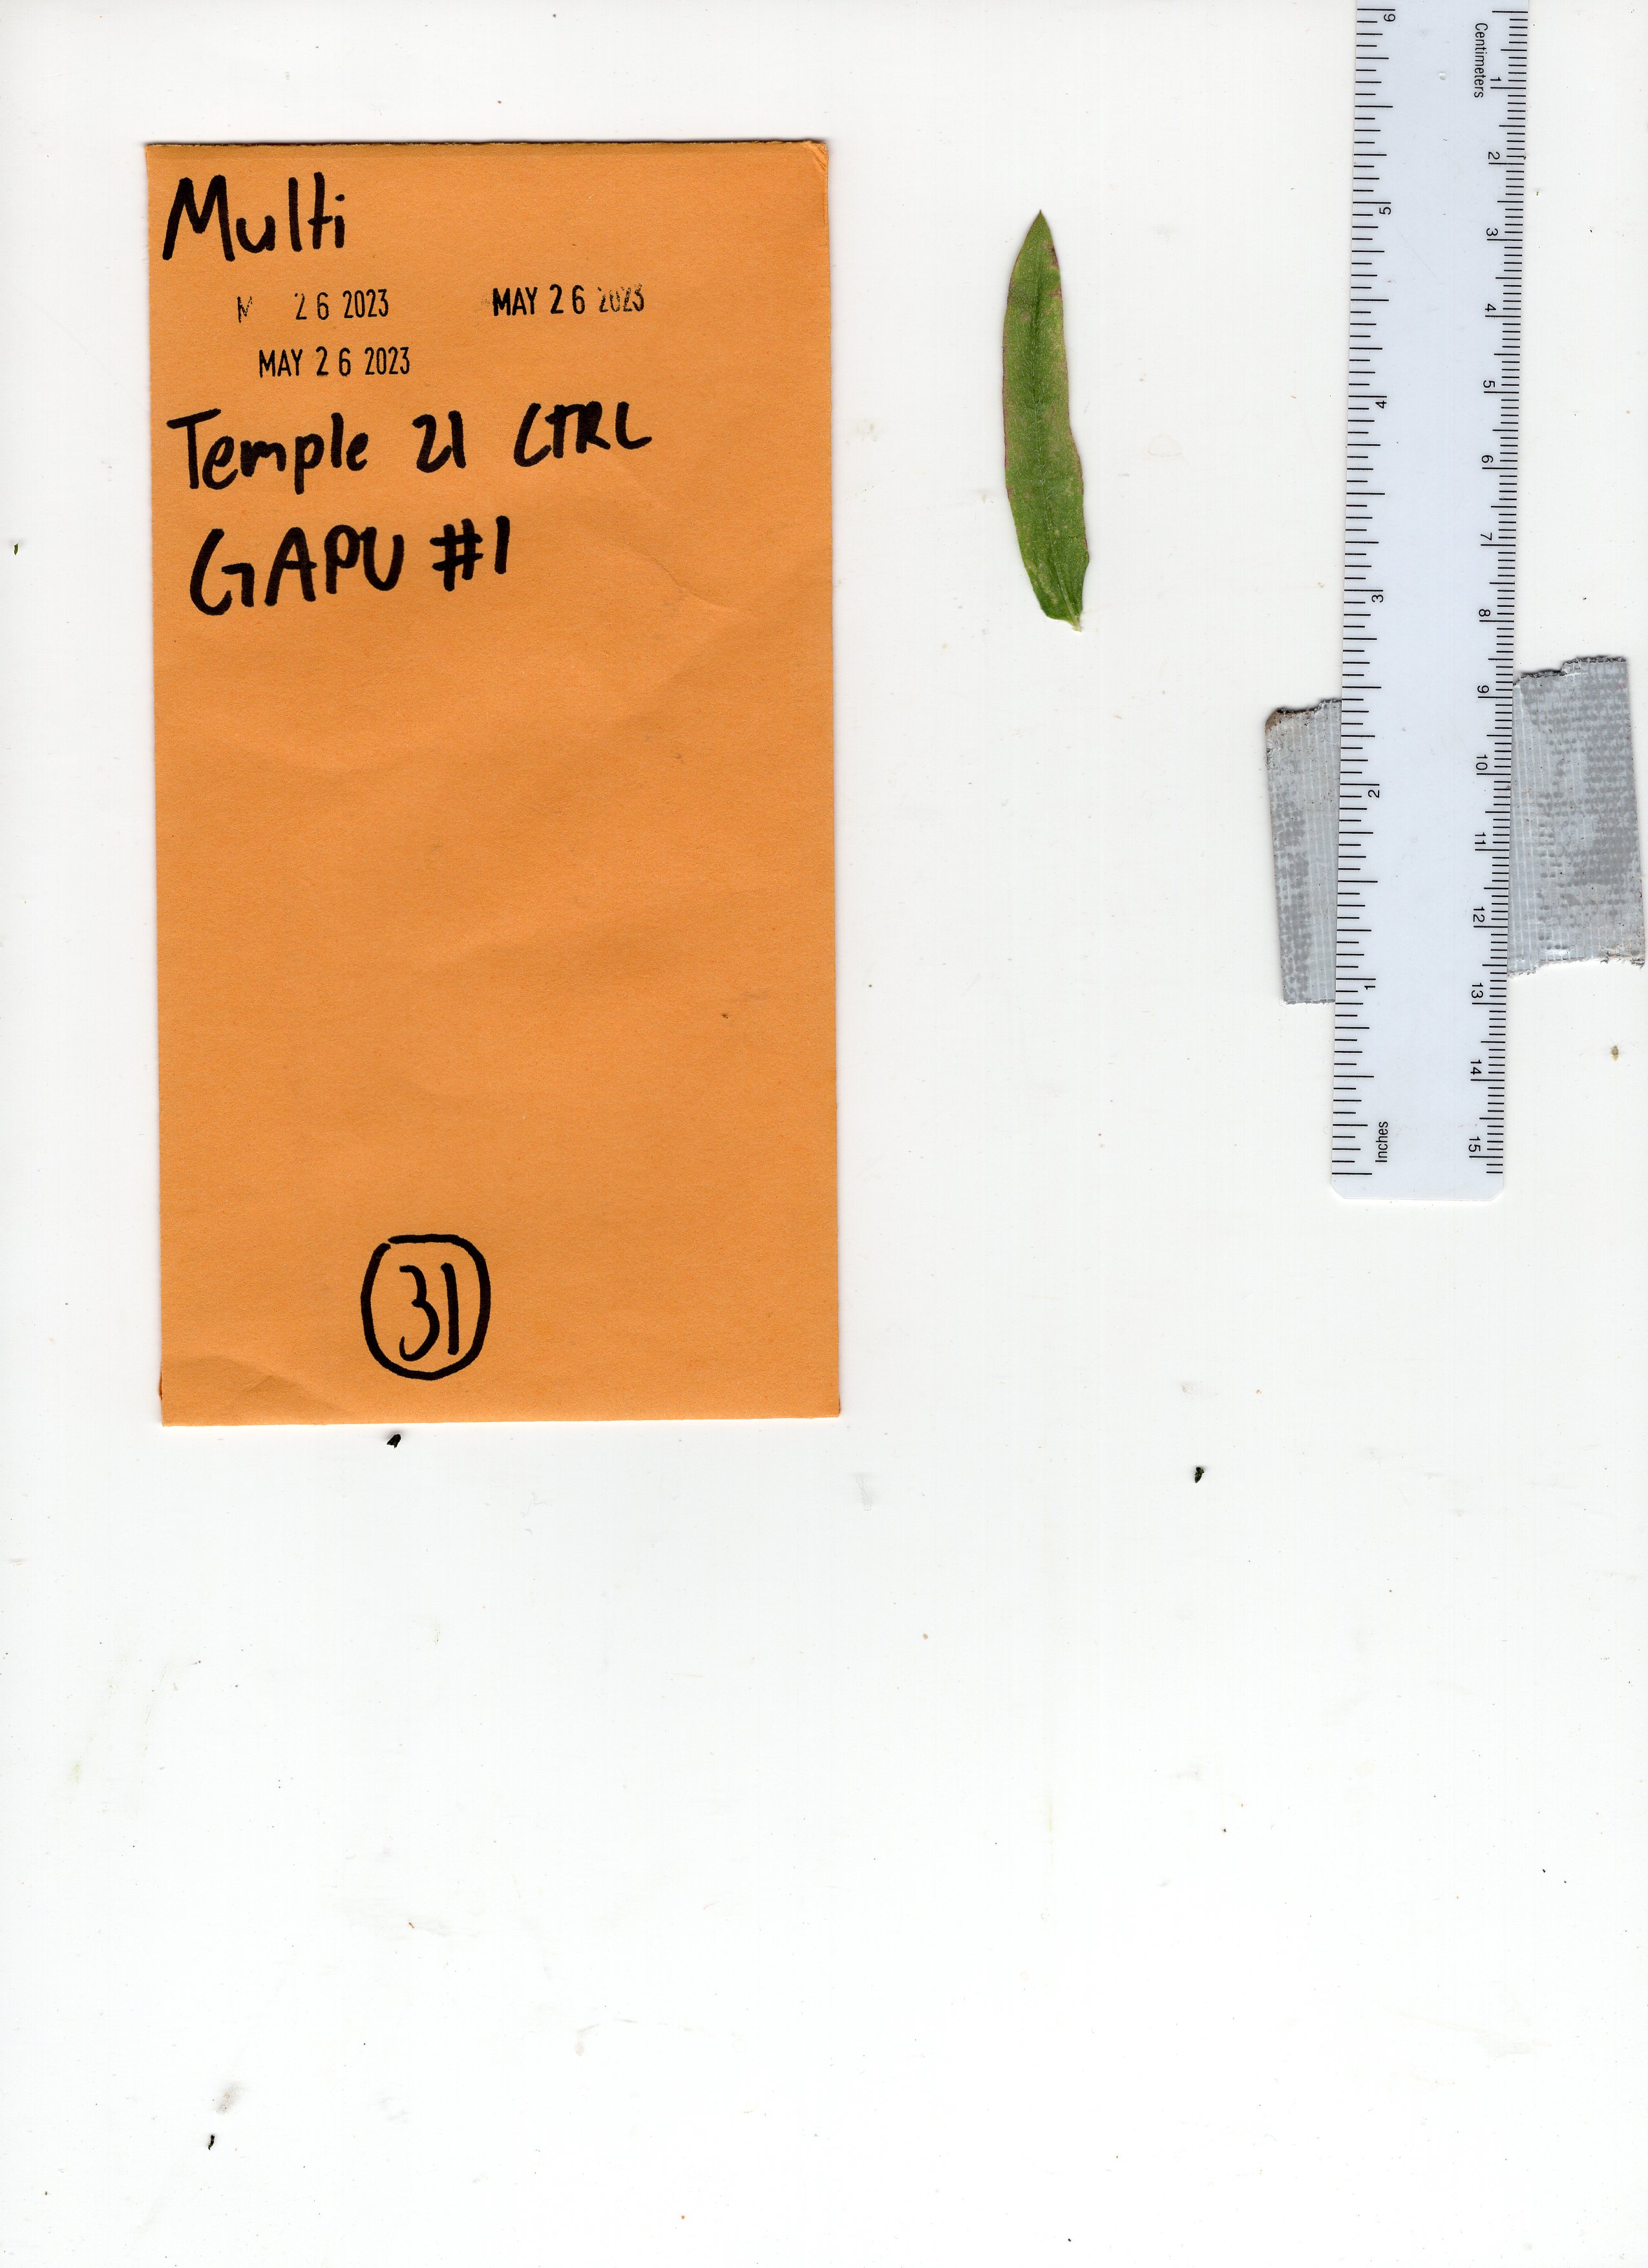 Multi
M 26 2023 MAY 26 2023
MAY 26 2023
Temple 21 CTRL
GAPU #1
31
Centimeters
1
2
3
4
5
6
7
8
9
10
11
12
13
14
15
6
5
4
3
2
1
Inches